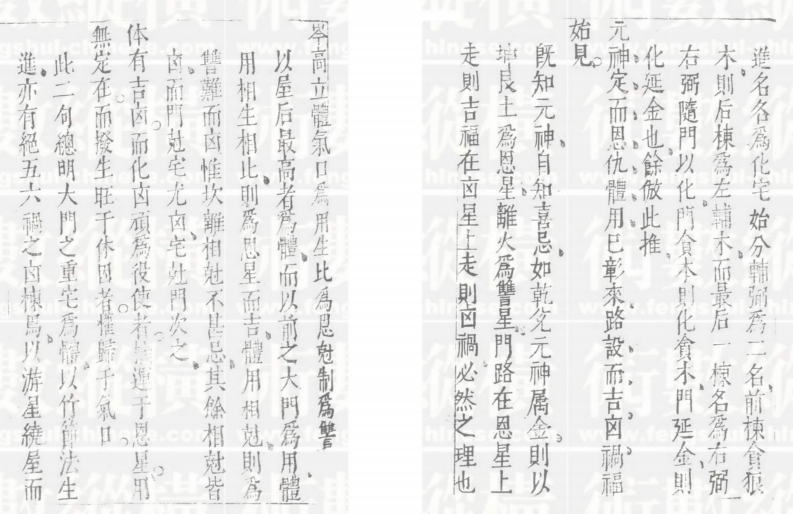 進名各為化宅始分輔弼為二名前棟貪狼
木則后棟為左輔木而最后一棟名為右弼
右弼隨門以化門貪木則化貪木門延金則
化延金也餘倣此推
元神定而恩仇體用已彰來路設而吉凶禍福
始見
既知元神自知喜忌如乾兌元神屬金則以
坤艮土為恩星離火為讐星門路在恩星上
走則吉福在凶星上走則凶禍必然之理也
岑高立體氣口為用生比為恩尅制為讐
以屋后最高者為體而以前之大門為用體
用相生相比則為恩星而吉體用相尅則為
讐難而凶惟坎離相尅不甚忌其餘相尅皆
凶而門尅宅尤凶宅尅門次之
体有吉凶而化凶頑為役使者遇于恩星用
無定在而撥生旺于休囚者權歸于氣口
此二句總明大門之重宅為體以竹節法生
進亦有絕五六禍之凶棟焉以游星繞屋而